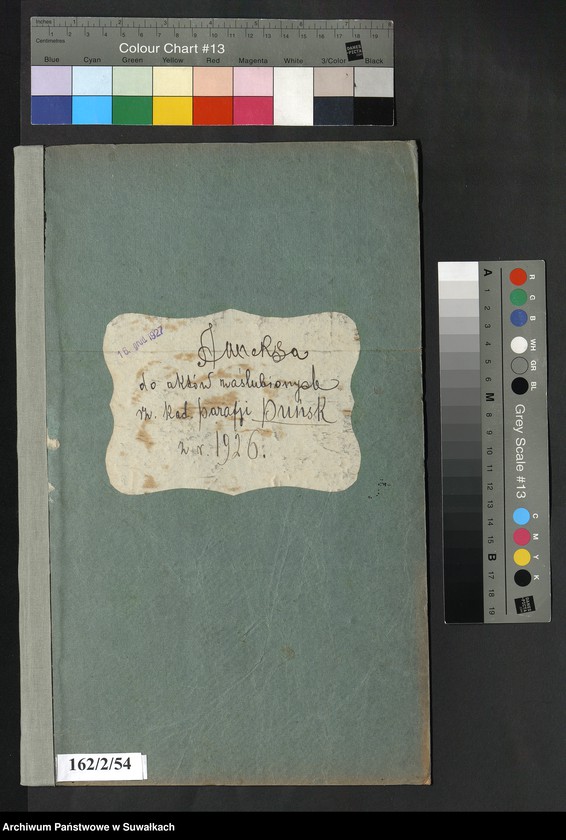 Inches 1 2 3 4 5 6 7 8
Centimetres 1 2 3 4 5 6 7 8 9 10 11 12 13 14 15 16 17 18 19
Colour Chart #13
Blue Cyan Green Yellow Red Magenta White 3/Color Black
1927
Aneksa
do aktów zaślubionych
rz. kat. parafji Puńsk
z r. 1926.
162/2/54
A 1 2 3 4 5 6 M 8 9 10 11 12 13 14 15 B 17 18 19
R G B WH GR BL
Grey Scale #13
C M Y K
Archiwum Państwowe w Suwałkach